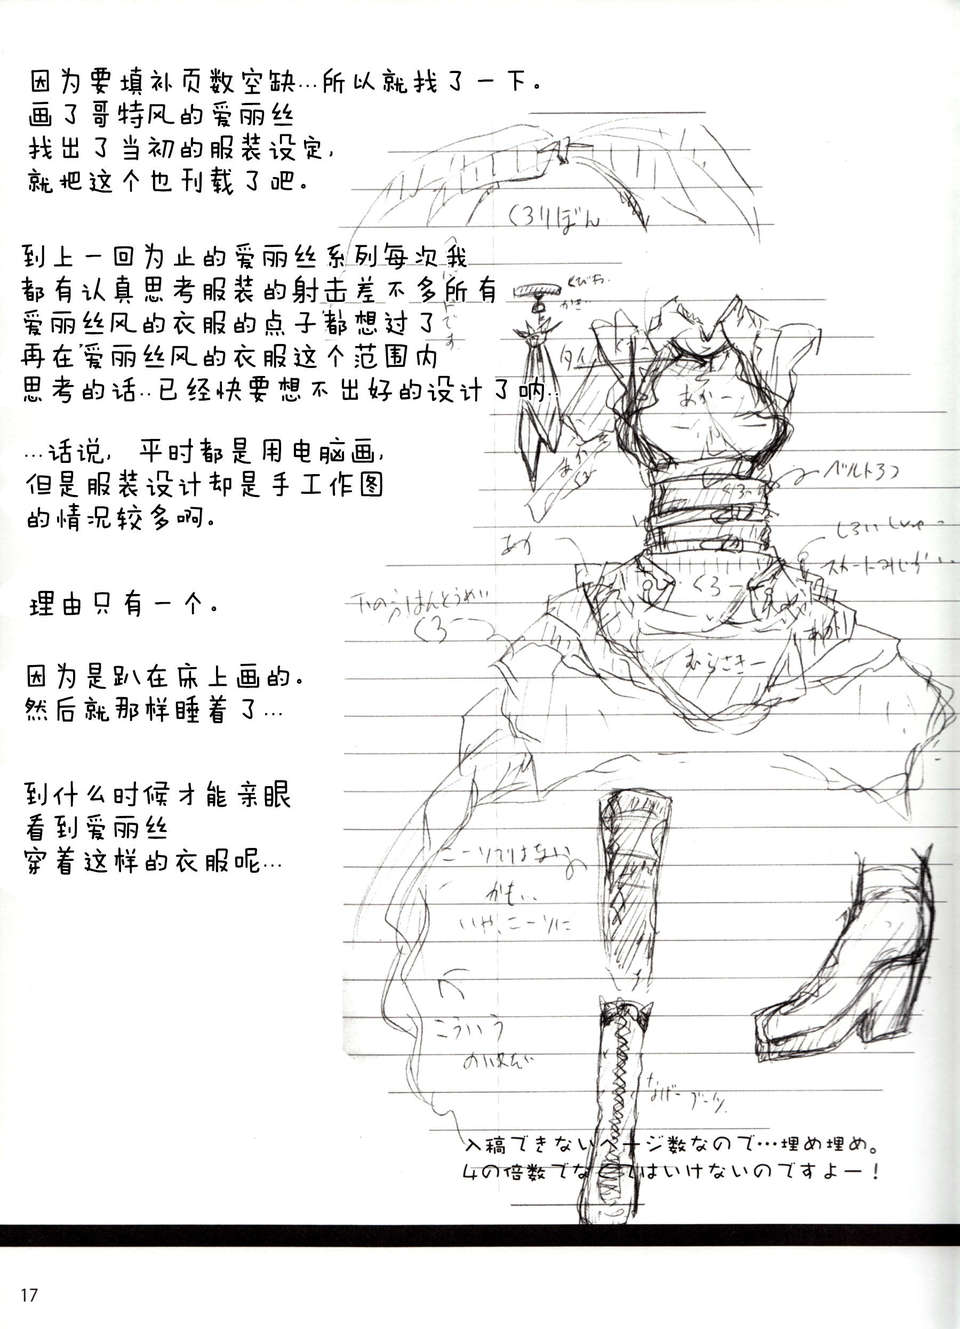 因为要填补页数空缺…所以就找了一下。
画了哥特风的爱丽丝
找出了当初的服装设定，
就把这个也刊载了吧。
到上一回为止的爱丽丝系列每次我
都有认真思考服装的射击差不多所有
爱丽丝风的衣服的点子都想过了
再在爱丽丝风的衣服这个范围内
思考的话..已经快要想不出好的设计了呐..
…话说，平时都是用电脑画，
但是服装设计却是手工作图
的情况较多啊。
理由只有一个。
因为是趴在床上画的。
然后就那样睡着了…
到什么时候才能亲眼
看到爱丽丝
穿着这样的衣服呢…
くろりぼん
くびわ
あかー
ベルト3つ
くろー
あか
くろー
むらさきー
下のらはんとうめい
くろー
ニーソではない
かも..
いや、ニーソに
こういう
なげーブーツ
入稿できないページ数なので…埋め埋め。
4の倍数でなくてはいけないのですよー！
17